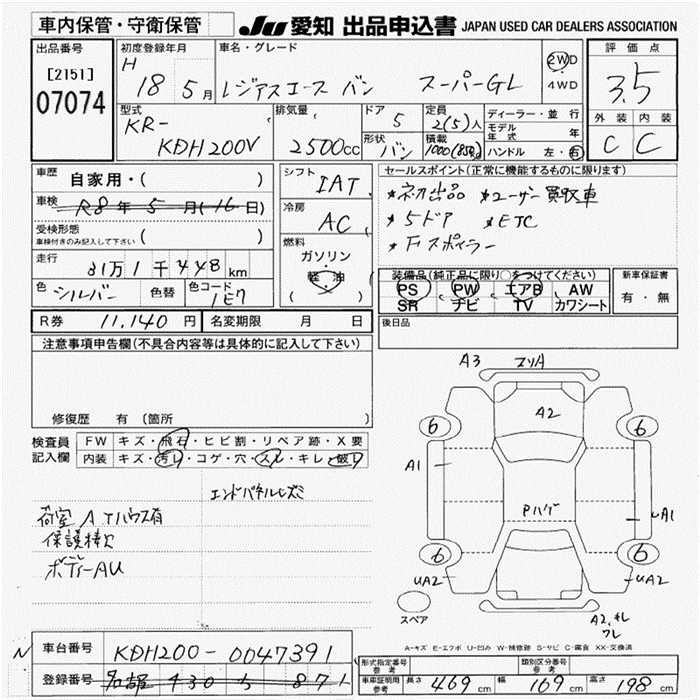 車内保管・守衛保管
JU 愛知 出品申込書 JAPAN USED CAR DEALERS ASSOCIATION
出品番号
[2151]
07074
初度登録年月
H 18 5月
車名・グレード
レジアスエース バン スーパーGL
2WD
・
4WD
評価点
3.5
外装 内装
C C
型式
KR-
KDH200V
排気量
2500cc
ドア 5
形状 バン
定員 2(5)人
積載 1000(850)kg
ディーラー・並行
モデル年式 年
ハンドル 左・右
車歴 自家用・( )
車検 R8年5月(16日)
受検形態
車検付きのみ記入して下さい ( )
走行 31万1千448km
色 シルバー 色替 色コード 1E7
シフト IAT
冷房 AC
燃料
ガソリン
・
軽・油
( )
セールスポイント(正常に機能するものに限ります)
★初出品 ★ユーザー買取車
★5ドア ★ETC
★Fスポイラー
装備品(純正品に限り○をつけてください)
PS PW エアB AW
SR ナビ TV カワシート
新車保証書
有・無
R券 11,140円 名変期限 月 日
後日品
注意事項申告欄(不具合内容等は具体的に記入して下さい)
修復歴 有 (箇所
検査員
記入欄
FW キズ・飛石・ヒビ割・リペア跡・X要
内装 キズ・汚レ・コゲ・穴・スレ・キレ・破レ
エンドパネルヒズミ
荷室 A Tハウス有
保護棒欠
ボディーAU
A3 エリA
6 A2 6
A1
Pハゲ
UA1
6 6
UA2 UA2
スペア
A2,キレ
ワレ
A-キズ E-エクボ U-凹み W-補修跡 S-サビ C-腐食 XX-交換済
N 車台番号 KDH200-0047391
登録番号 名古屋 430 ち 871
形式指定番号
参考
類別区分番号
参考
車庫証明用
参考
長さ 469cm 幅 169cm 高さ 198cm